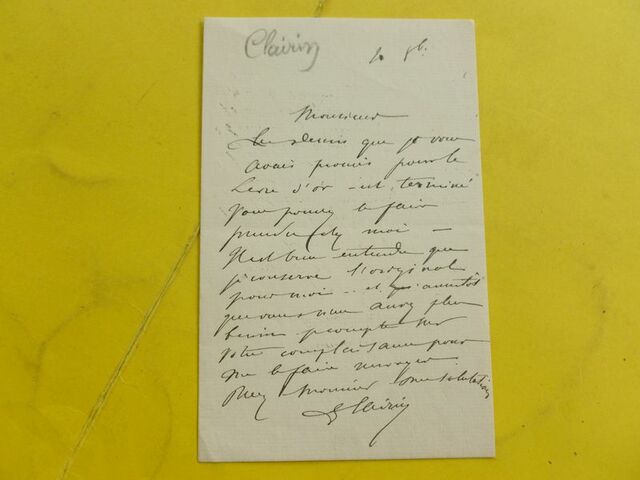 Clairin
Monsieur
Le dessin que je vous
avais promis pour le
Livre d'or - est terminé
vous pouvez le faire
prendre chez moi -
Il est bien entendu que
je conserve l'original
pour moi - et aussitôt
que vous n'en aurez plus
besoin je compte sur
votre complaisance pour
me le faire renvoyer
Monsieur mes salutations
G Clairin